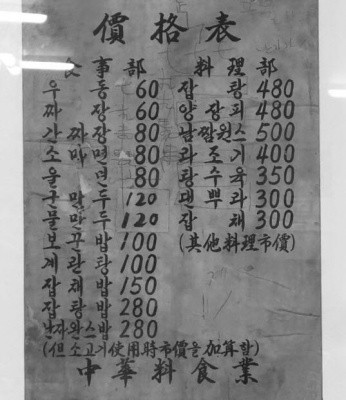 價格表
食事部
우동 60
짜장 60
간짜장 80
소마면 80
울면 80
군만두 120
물만두 120
보꾸밥 100
계란탕 100
잡채밥 150
잡탕밥 280
난자완스밥 280
料理部
잡탕 480
양장피 480
500
라조기 400
탕수육 350
댄뿌라 300
잡채 300
(其他料理市價)
(但소고기使用時市價을加算함)
中華料食業